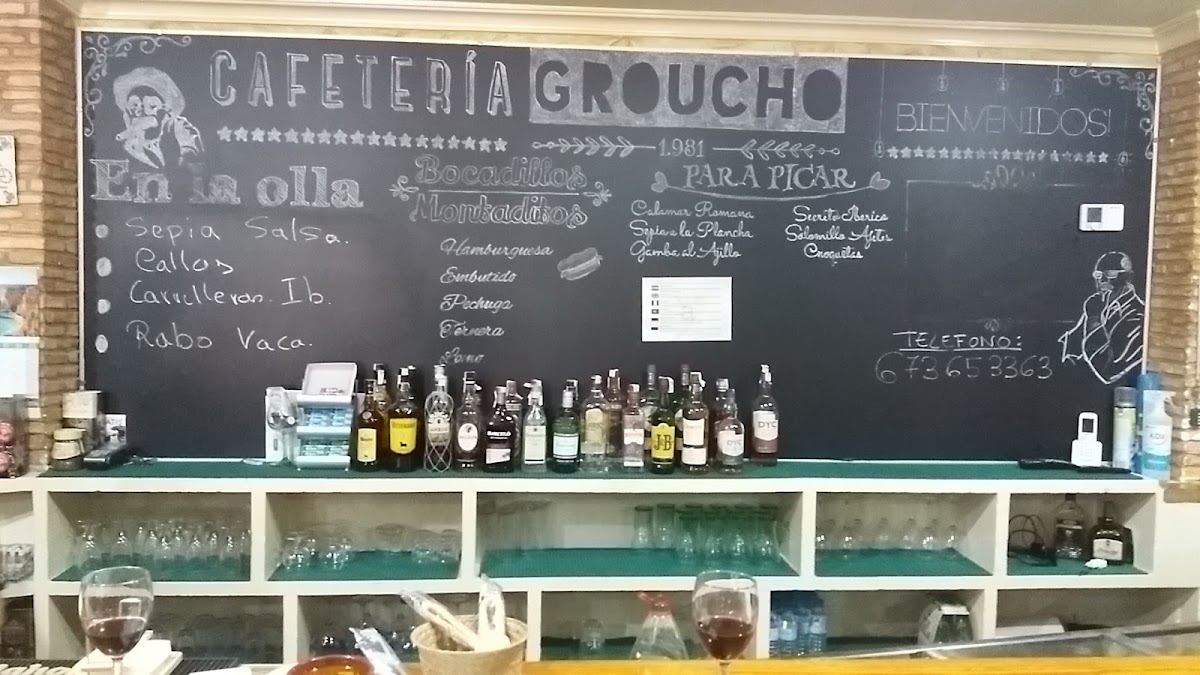 CAFETERÍA GROUCHO
1.981
BIENVENIDOS!
En la olla
Sepia Salsa.
Callos
Carrilleras. Ib.
Rabo Vaca.
Bocadillos
Montaditos
Hamburguesa
Embutido
Pechuga
Ternera
Lomo
PARA PICAR
Calamar Romana
Sepia a la Plancha
Gamba al Ajillo
Secreto Iberico
Solomillo Ajetes
Croquetas
TELEFONO:
673653363
J&B
DYC
DYC